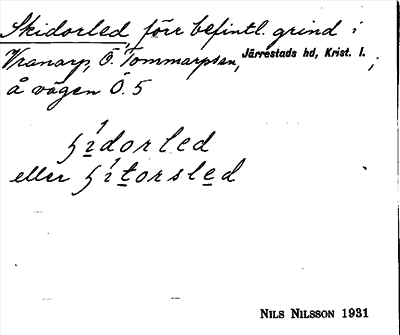 Skidorled förr befintl. grind i
Vranarp, Ö. Tommarpsån, Järrestads hd, Krist. l. ;
å vägen Ö. 5
ɧídorled
eller ɧítorsled
NILS NILSSON 1931